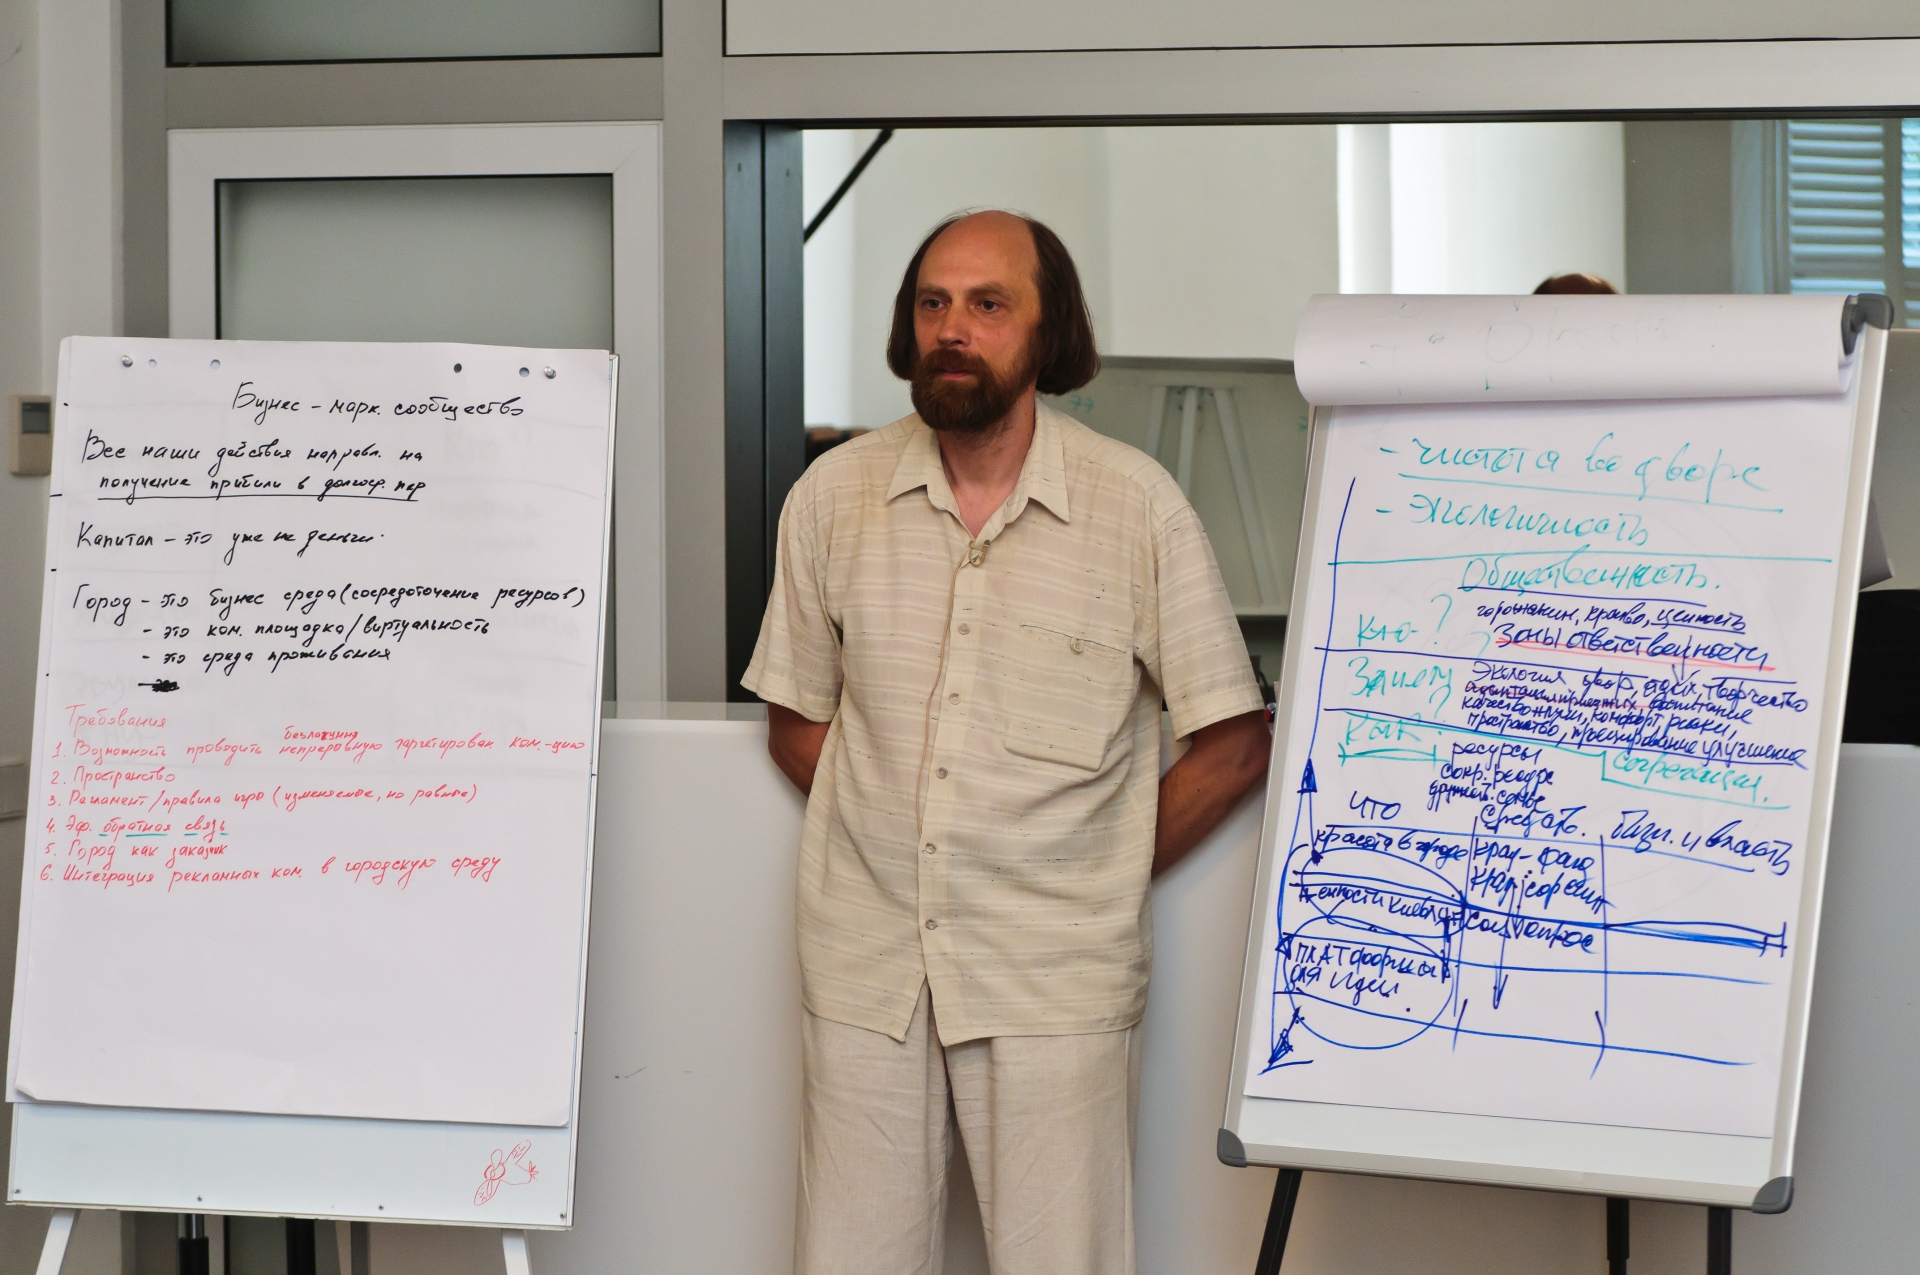 Бизнес – марк. сообщество
Все наши действия направл. на
получение прибыли в долгоср. пер
Капитал – это уже не деньги.
Город – это бизнес среда (сосредоточение ресурсов)
- это ком. площадка/виртуальность
- это среда проживания
Требования
1. Возможность проводить непрерывную таргетирован. ком-цию
2. Пространство
3. Регламент/правила игры (изменяемые, но равные)
4. Эф. обратная связь
5. Город как заказчик
6. Интеграция рекламных ком. в городскую среду
- чистота во дворе
- экологичность
Общественность.
горожанин, ценность
Кто?
Зоны ответственности
Зачем?
Экология двор, отдых, творчество
качество жизни, комфорт,
пространство, проектирование улучшение
Как
ресурсы
что
Бизн. и власть
красота в городе
Крау-фанд
Крауд сорсинг
ценности киевлян
соц опрос
Платформы
для идеи